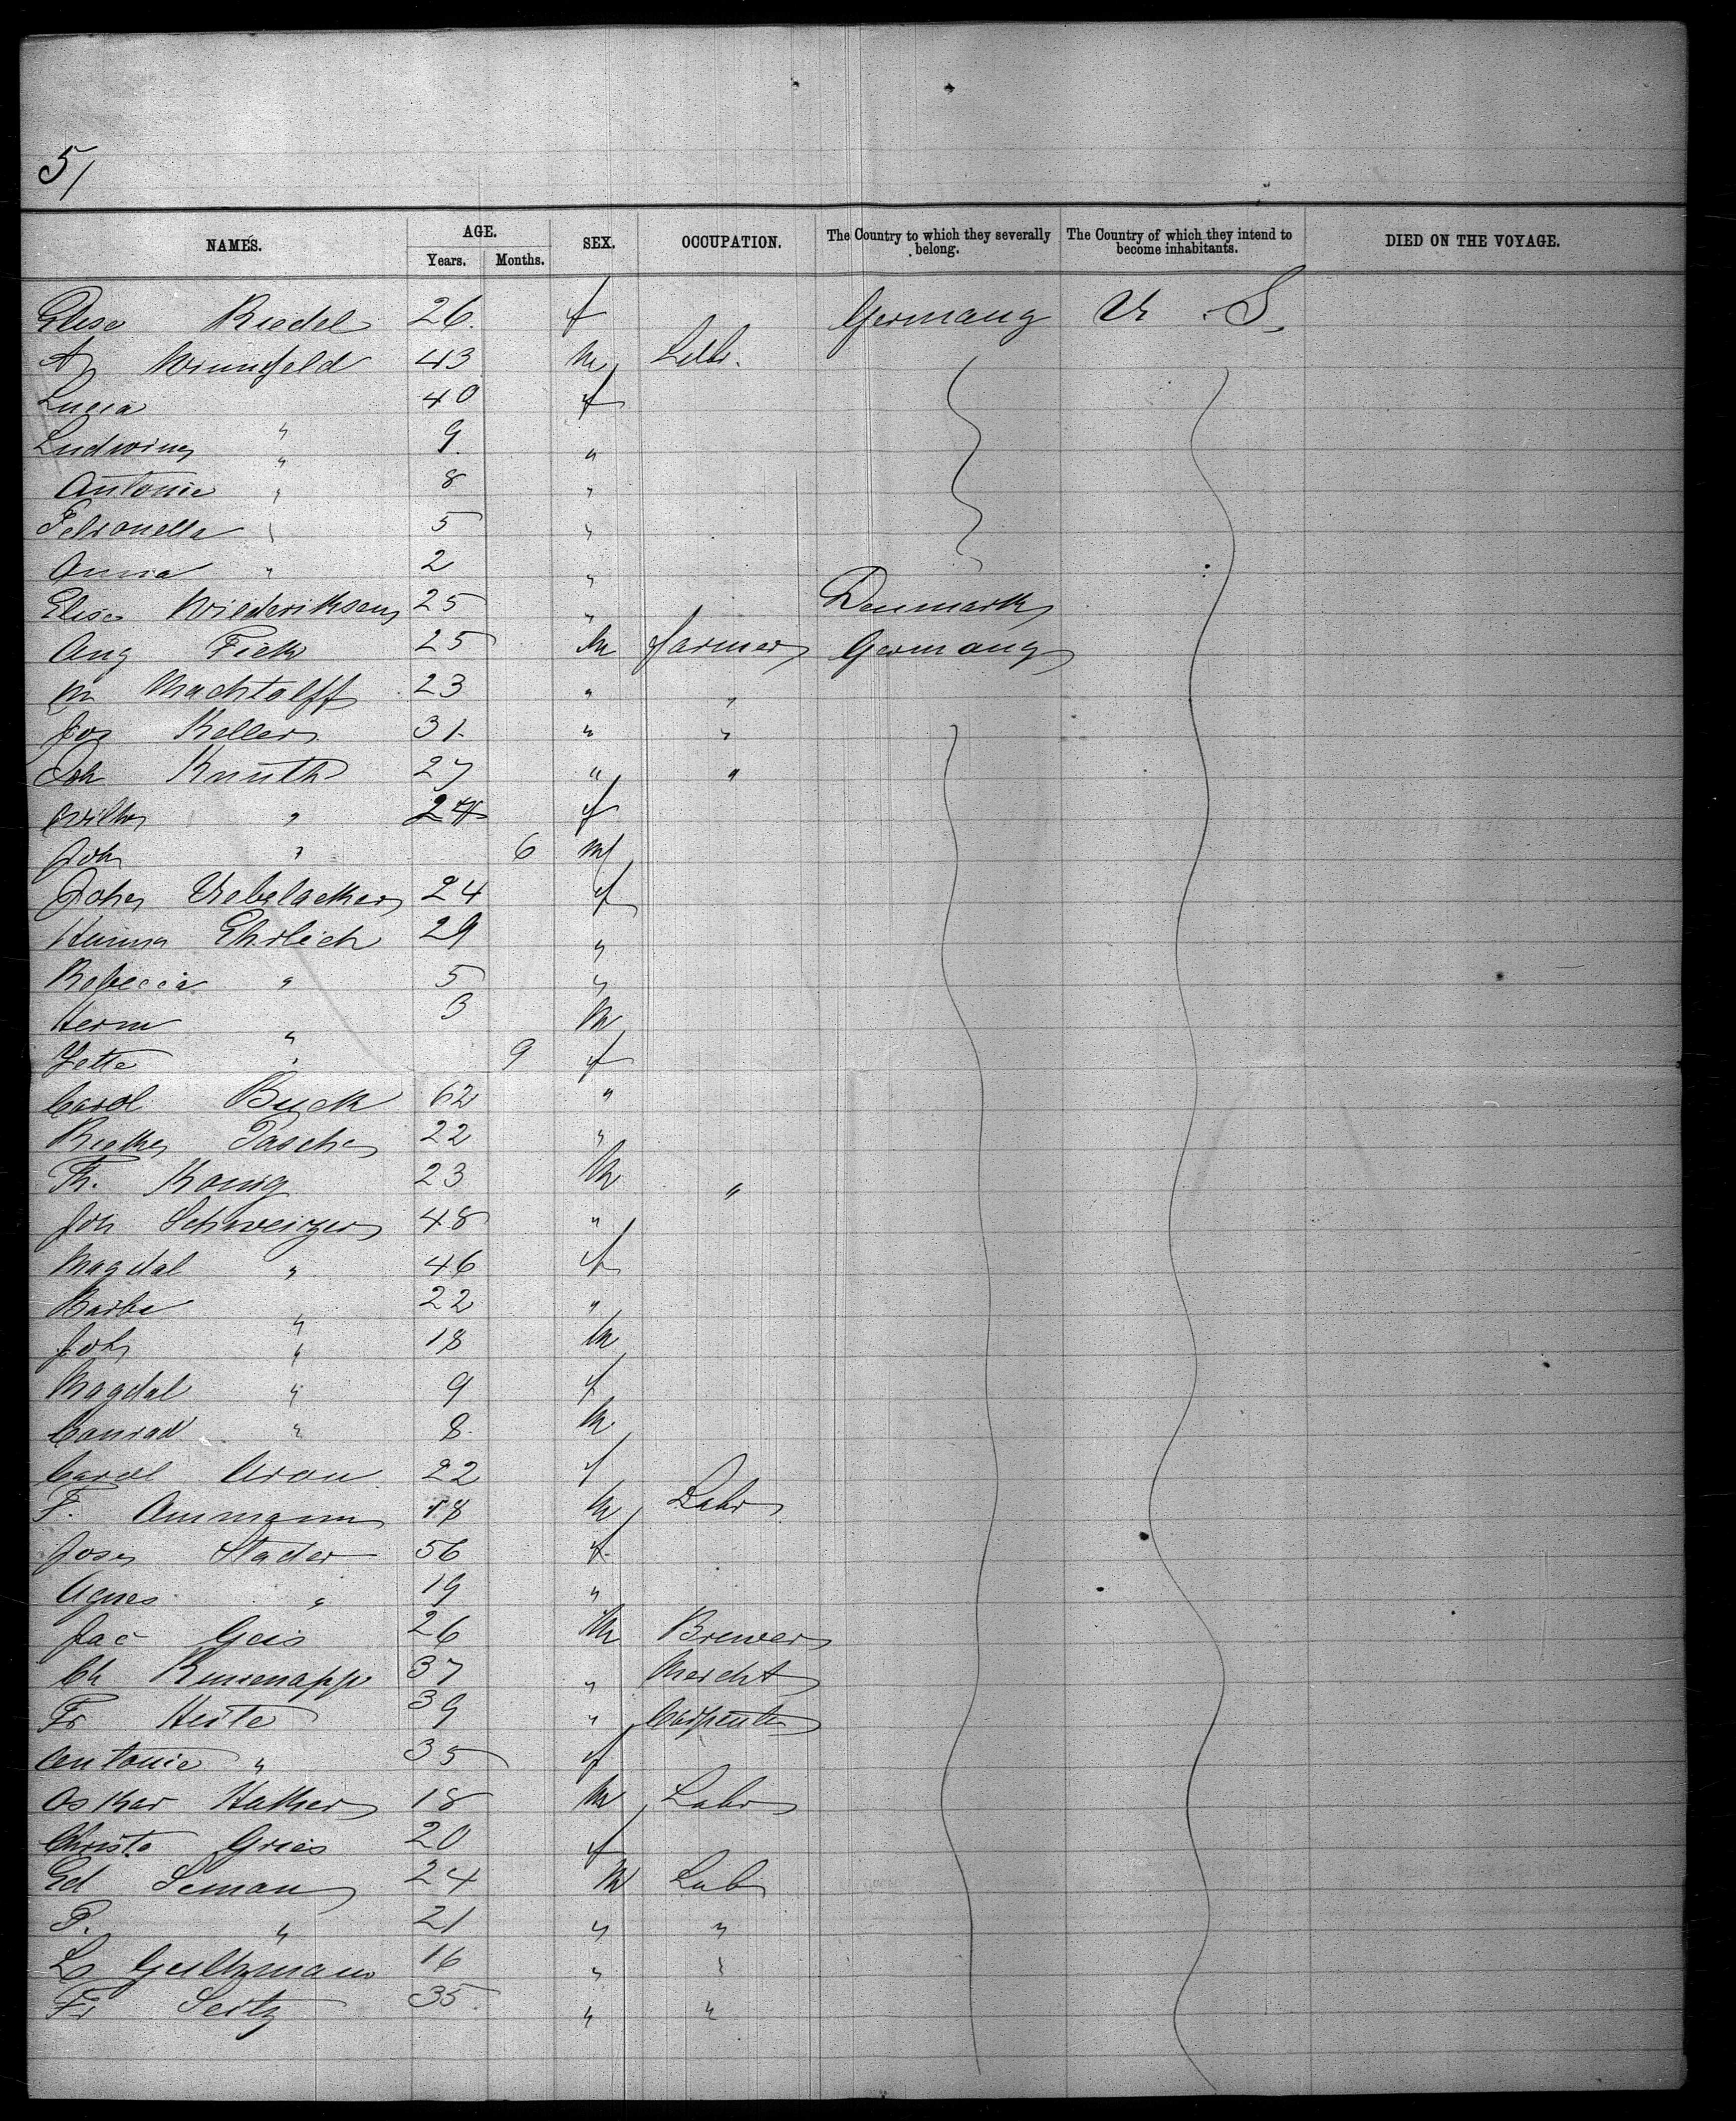 51
NAMES. AGE. SEX. OCCUPATION. The Country to which they severally belong. The Country of which they intend to become inhabitants. DIED ON THE VOYAGE.
Years. Months.
Elise Riedel 26. f Germany U. S.
43 m
Lucia " 40 f
Ludwina " 9. "
Antonie " 8 "
Petronella " 5 "
Anna " 2 "
Elise 25 " Denmark
Aug Fick 25 m farmer Germany
M Machtolff 23 " "
Jos Keller 31. " "
Joh Knuth 27 " "
Wilh " 24 f
Joh " 6 m
Joha Uebelacker 24 f
Hanna Ehrlich 29 "
Rebecca " 5 "
Herm " 3 m
Jette " 9 f
Carol Buck 62 "
Pasche 22 "
Th. Konig 23 m "
Joh Schweizer 48 "
Magdal " 46 f
Barba " 22 "
Joh " 18 m
Magdal " 9 f
Conrad " 8. m
Carol 22 f
F. Ammann 18 m Labr
Josef Stader 56 f
Agnes " 19 "
Jac Geis 26 m Brewer
Ch 37 " Mercht
Fr Heite 39 " Carpenter
Antonie " 35 f
Oskar 18 m Labr
Christe Gries 20 f
Ed Seman 24 m Lab
P. " 21 " "
L 16 " "
Fr Seitz 35. " "